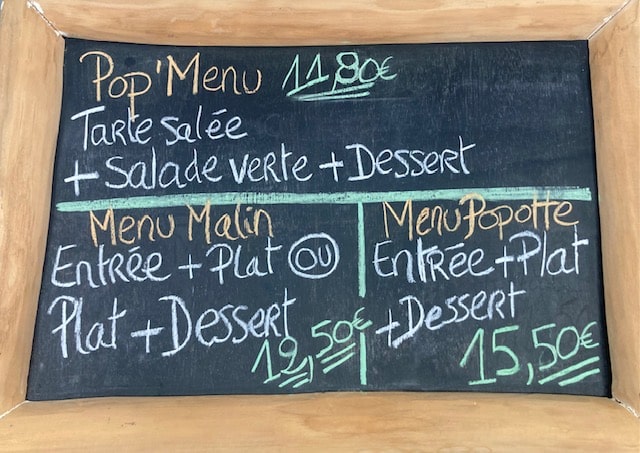 Pop'Menu 11,80€
Tarte salée
+ Salade verte + Dessert
Menu Malin
Entrée + Plat OU
Plat + Dessert
12,50€
Menu Popotte
Entrée + Plat
+ Dessert
15,50€